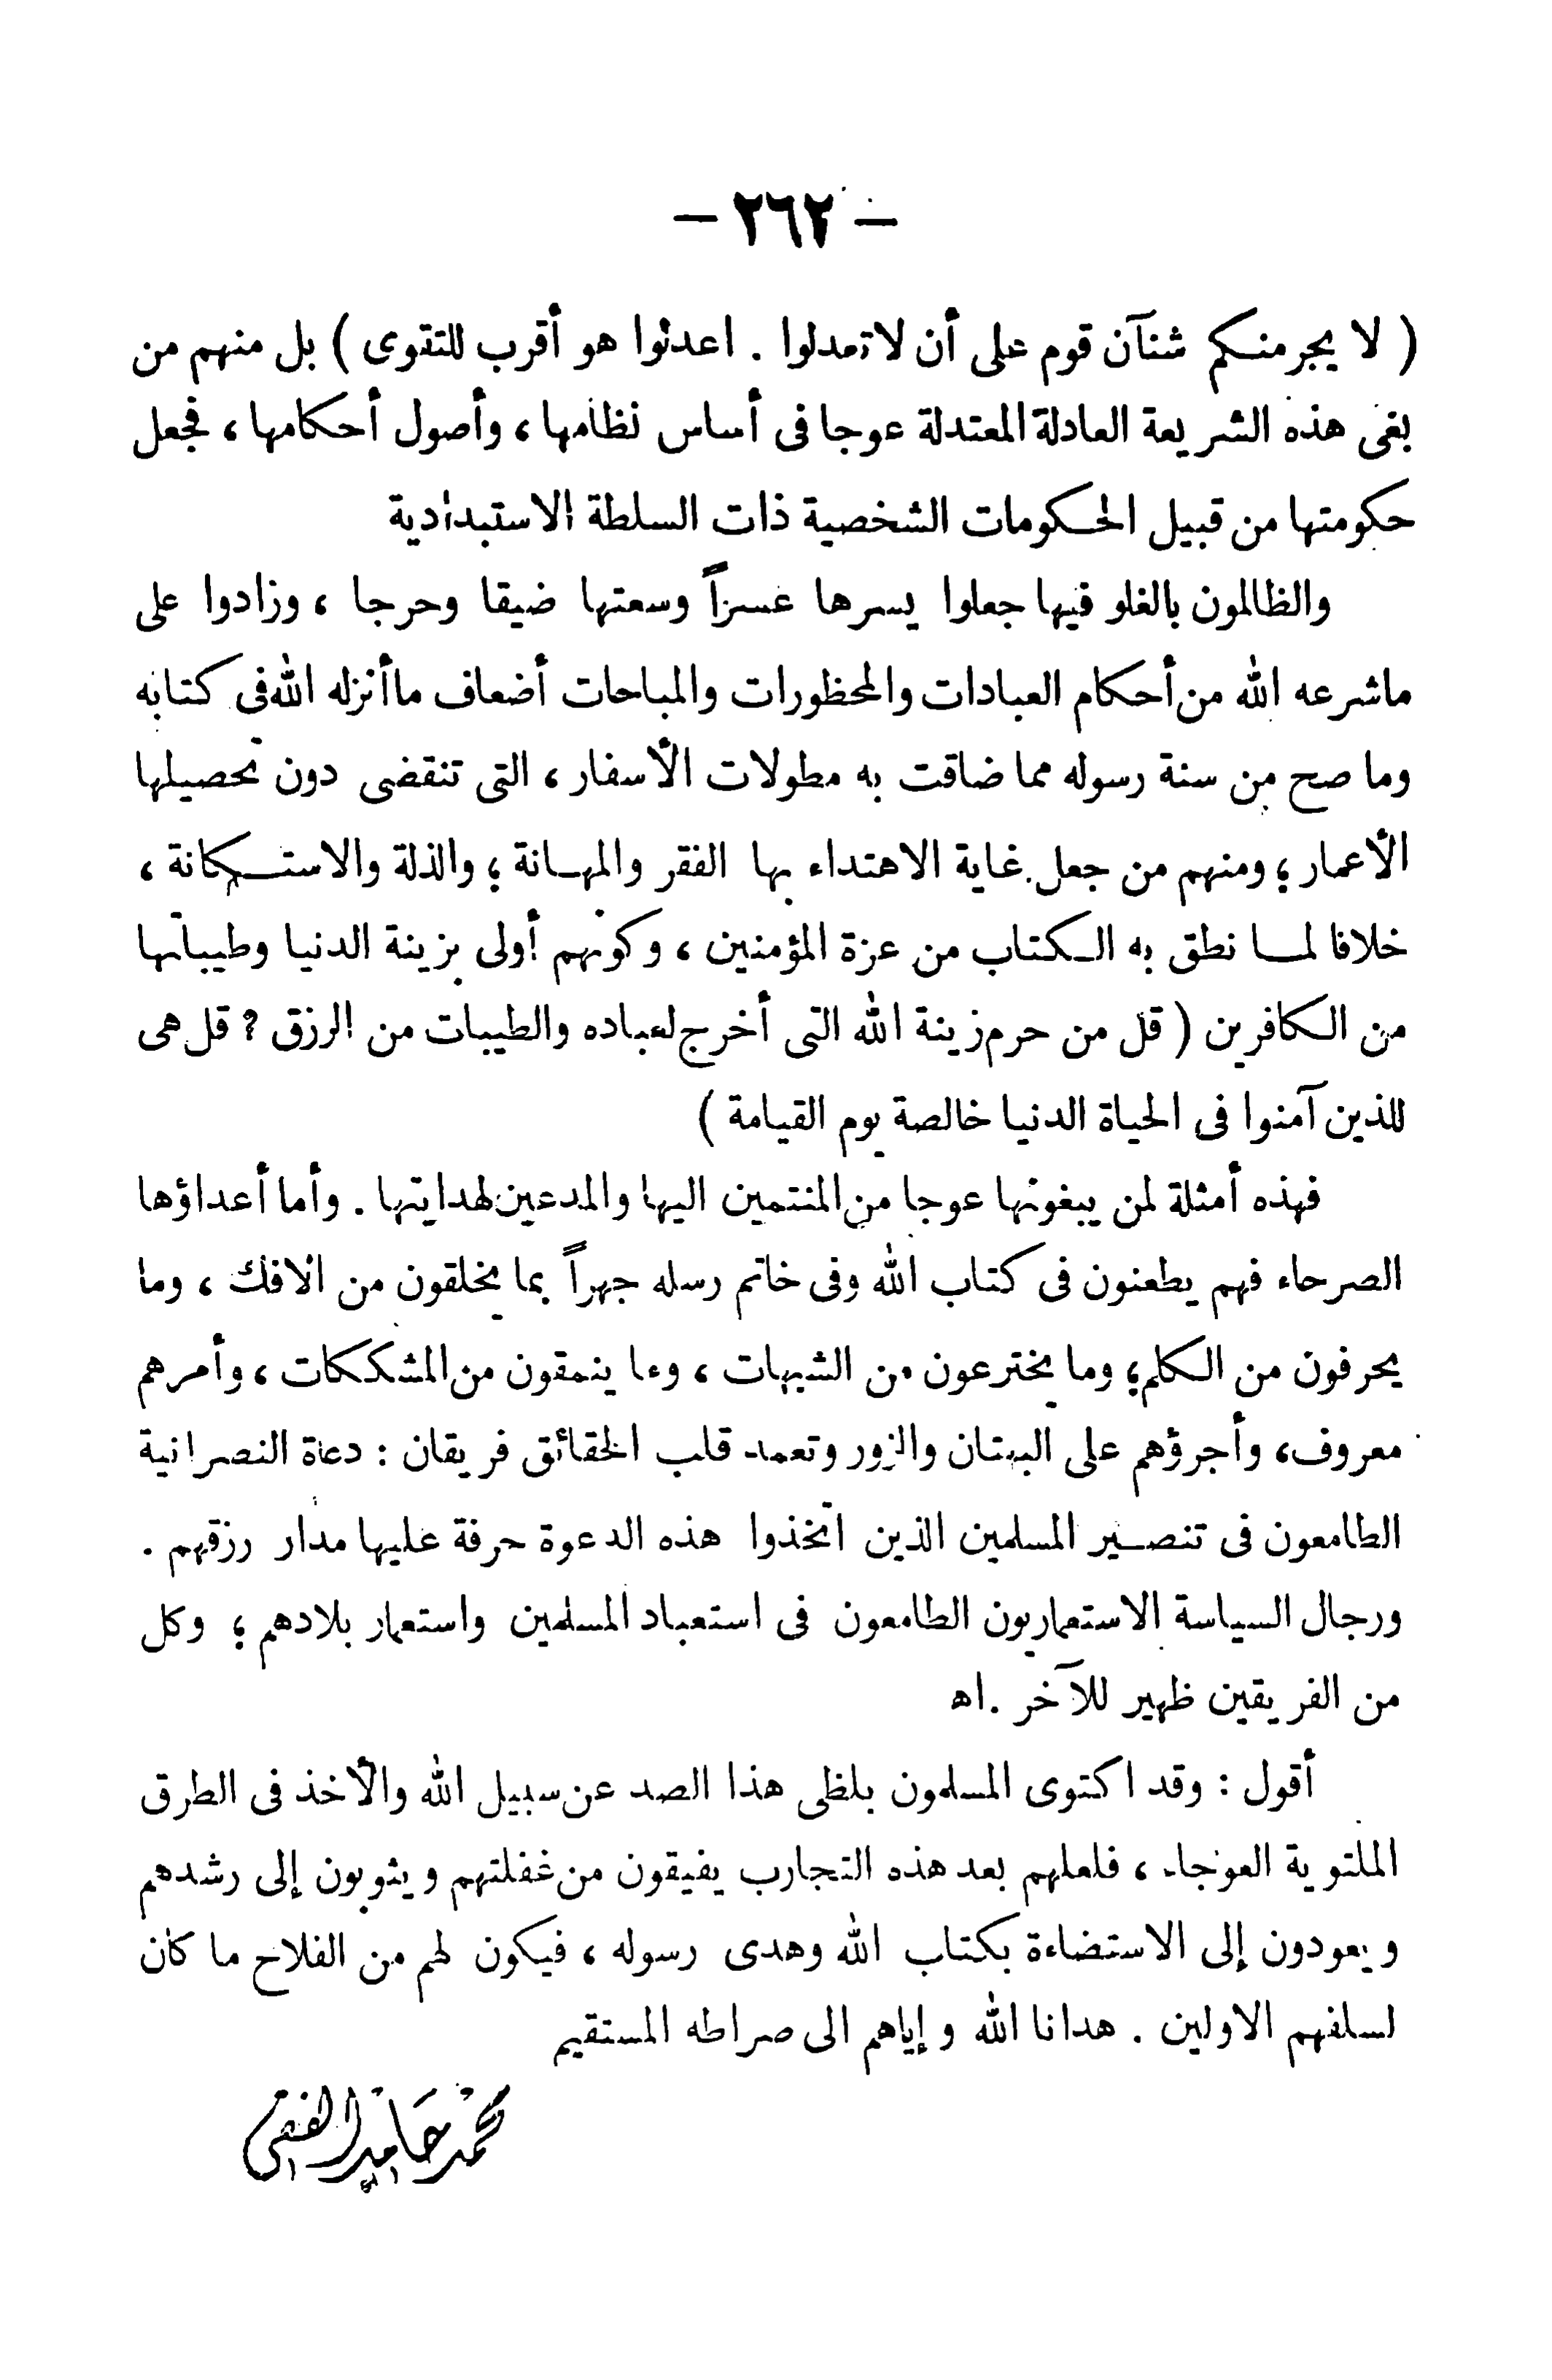 — ٢٦٢ —
( لا يجرمنكم شنآن قوم على أن لا تعدلوا . اعدلوا هو أقرب للتقوى ) بل منهم من
بغى هذه الشريعة العادلة المعتدلة عوجا فى أساس نظامها ، وأصول أحكامها ، فجعل
حكومتها من قبيل الحكومات الشخصية ذات السلطة الاستبدادية
والظالمون بالغلو فيها جعلوا يسرها عسراً وسعتها ضيقا وحرجا ، وزادوا على
ماشرعه الله من أحكام العبادات والمحظورات والمباحات أضعاف ماأنزله الله فى كتابه
وما صح من سنة رسوله مما ضاقت به مطولات الأسفار ، التى تنقضى دون تحصيلها
الأعمار ؛ ومنهم من جعل غاية الاهتداء بها الفقر والمهانة ؛ والذلة والاستكانة ،
خلافا لما نطق به الكتاب من عزة المؤمنين ، وكونهم أولى بزينة الدنيا وطيباتها
من الكافرين ( قل من حرم زينة الله التى أخرج لعباده والطيبات من الرزق ? قل هى
للذين آمنوا فى الحياة الدنيا خالصة يوم القيامة )
فهذه أمثلة لمن يبغونها عوجا من المنتمين اليها والمدعين لهدايتها . وأما أعداؤها
الصرحاء فهم يطعنون فى كتاب الله وفى خاتم رسله جهراً بما يخلقون من الافك ، وما
يحرفون من الكلم ؛ وما يخترعون من الشبهات ، وما ينمقون من المشككات ، وأمرهم
معروف ، وأجرؤهم على البهتان والزور وتعمد قلب الحقائق فريقان : دعاة النصرانية
الطامعون فى تنصير المسلمين الذين اتخذوا هذه الدعوة حرفة عليها مدار رزقهم .
ورجال السياسة الاستعماريون الطامعون فى استعباد المسلمين واستعمار بلادهم ؛ وكل
من الفريقين ظهير للآخر . اه
أقول : وقد اكتوى المسلمون بلظى هذا الصد عن سبيل الله والأخذ فى الطرق
الملتوية العوجاء ، فلعلهم بعد هذه التجارب يفيقون من غفلتهم ويثوبون إلى رشدهم
ويعودون إلى الاستضاءة بكتاب الله وهدى رسوله ، فيكون لهم من الفلاح ما كان
لسلفهم الاولين . هدانا الله وإياهم الى صراطه المستقيم
محمد حامد الفقي